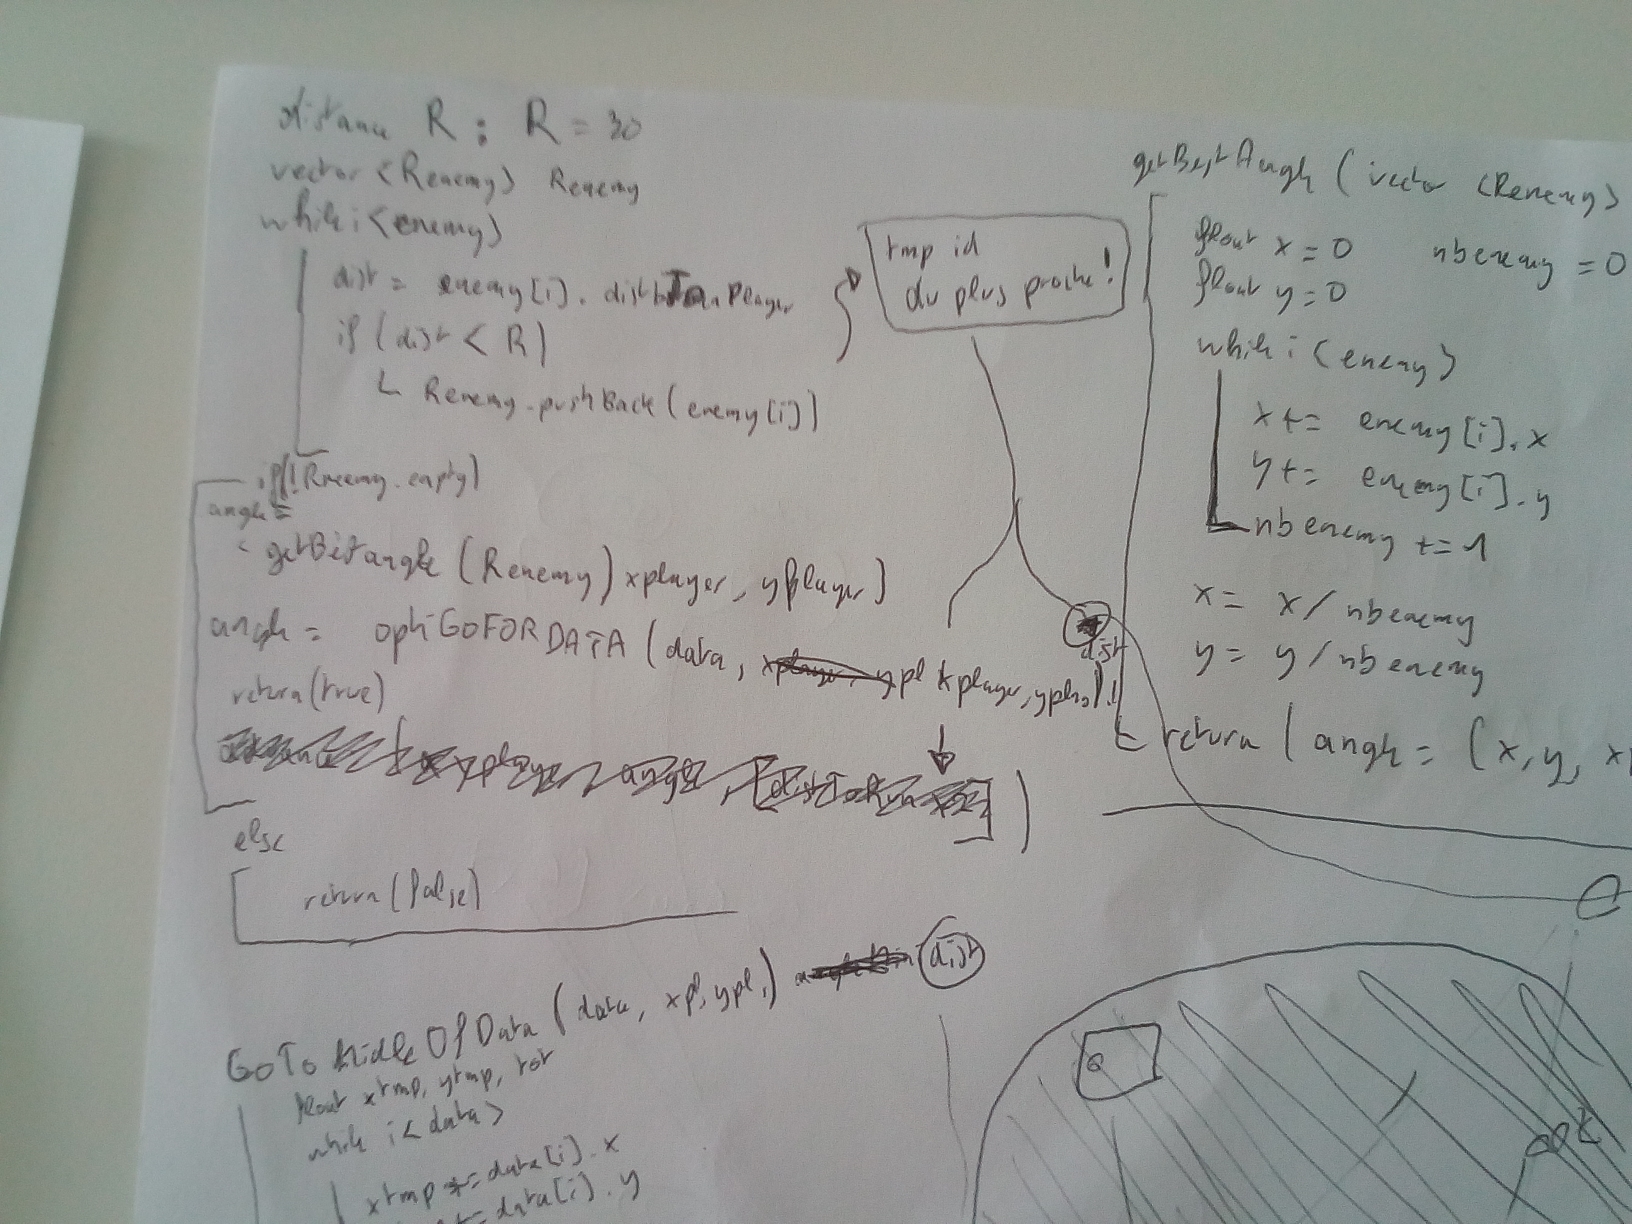 distance R : R = 30
vector <Renemy> Renemy
while i <enemy>
dist = enemy[i].
if (dist < R)
Renemy.pushBack(enemy[i])
if(!Renemy.empty)
angle =
(Renemy) xplayer, yplayer)
angle = optiGOFORDATA (data, xplayer,
return(true)
else
return(false)
tmp id
du plus proche!
dist
GoTo Midle Of Data (data, xpl, ypl,) dist
float xtmp, ytmp, tot
while i< data>
xtmp += data[i].x
+= data[i].y
getBestAngle (vector <Renemy>
float x = 0 nbenemy = 0
float y = 0
while i <enemy>
x += enemy[i].x
y += enemy[i].y
nbenemy += 1
x = x / nbenemy
y = y / nbenemy
return (angle = (x, y,